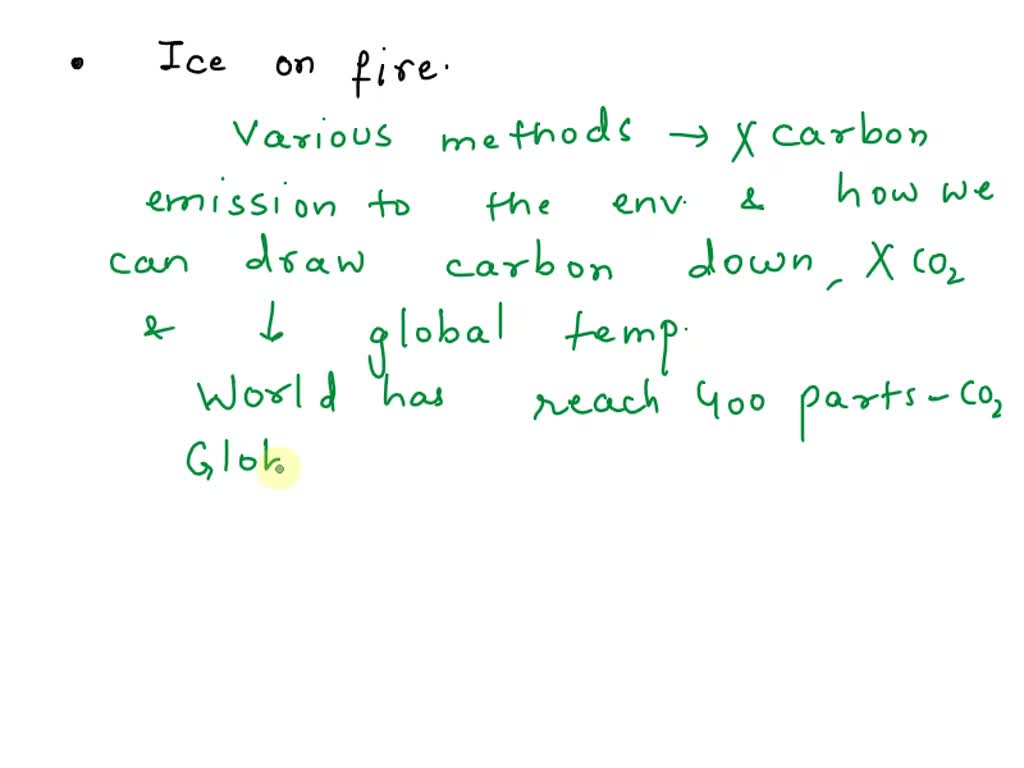 • Ice on fire.
Various methods → X carbon
emission to the env. & how we
can draw carbon down, X CO₂
& ↓ global temp.
World has reach 400 parts - CO₂
Glob